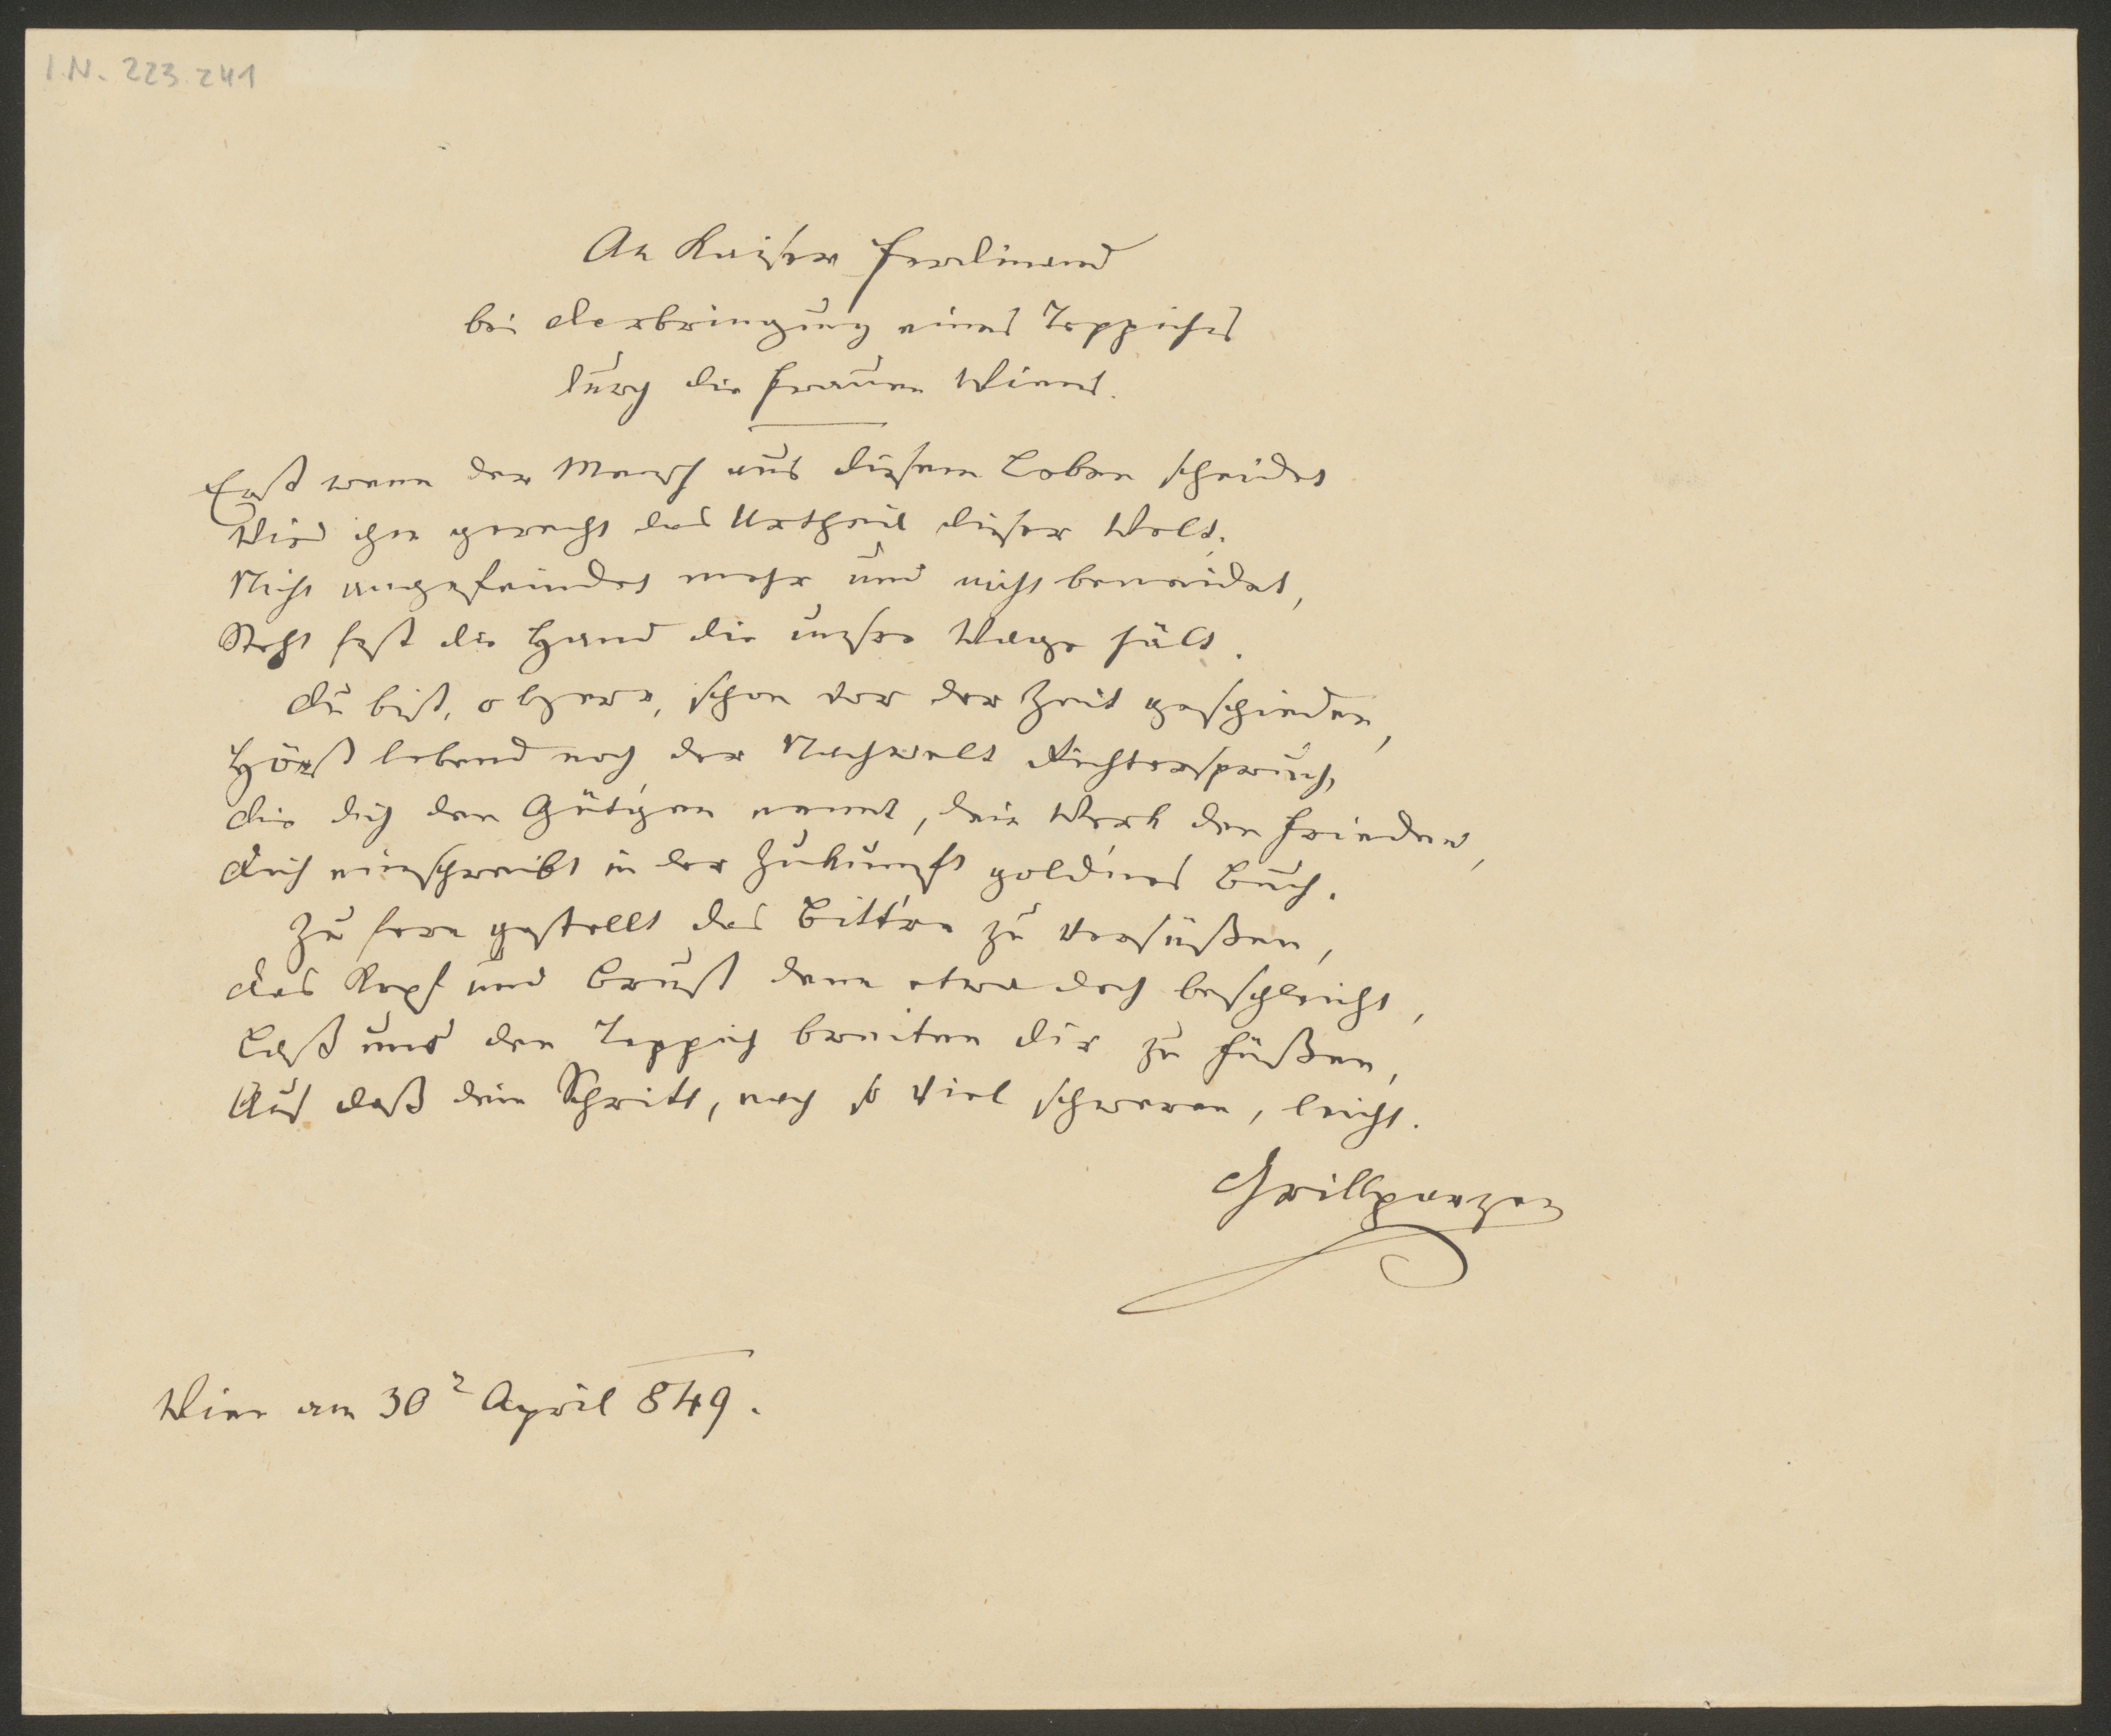 I.N. 223.241
An Kaiser Ferdinand
bei Darbringung eines Teppiches
durch die Frauen Wiens.
Erst wenn der Mensch aus diesem Leben scheidet
Wird ihm gerecht das Urtheil dieser Welt.
Nicht angefeindet mehr und nicht beneidet,
Steht fest die Hand die unsre Wage hält.
Du bist, o Herr, schon vor der Zeit geschieden,
Hörst lebend noch der Nachwelt Richterspruch,
Die dich den Gütgen nennt, dein Werk den Frieden,
Dich einschreibt in der Zukunft goldnes Buch.
Zu fern gestellt das Bittre zu versüßen,
Das Kopf und Brust denn etwa doch beschleicht,
Laß uns den Teppich breiten dir zu Füßen,
Auf daß dein Schritt, nach so viel schweren, leicht.
Grillparzer
Wien am 30 April 849.